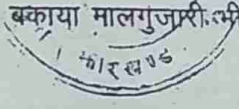 बकाया मालगुजारी
झारखण्ड